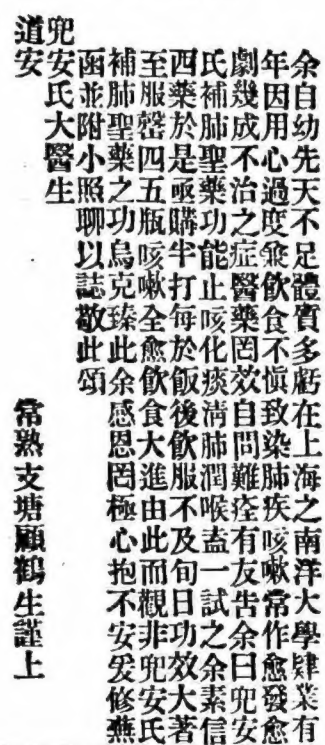 余自幼先天不足體質多虧在上海之南洋大學肄業有
年因用心過度兼飲食不愼致染肺疾咳嗽常作愈發愈
劇幾成不治之症醫藥罔效自問難痊有友告余曰兜安
氏補肺聖藥功能止咳化痰淸肺潤喉盍一試之余素信
西藥於是亟購半打每於飯後飲服不及旬日功效大著
至服罄四五瓶咳嗽全愈飲食大進由此而觀非兜安氏
補肺聖藥之功烏克臻此余感恩罔極心抱不安爰修蕪
函並附小照聊以誌敬此頌
兜安氏大醫生
道安
常熟支塘顧鶴生謹上